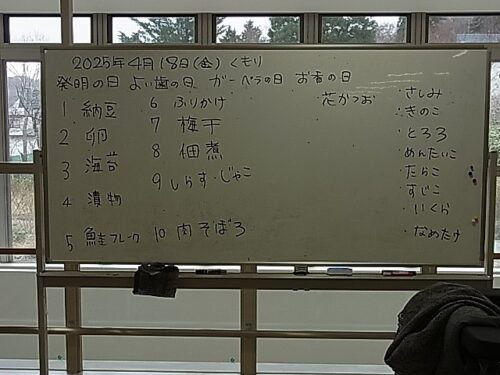 2025年4月18日(金) くもり
発明の日 よい歯の日 ガーベラの日 お香の日
1 納豆
2 卵
3 海苔
4 漬物
5 鮭フレーク
6 ふりかけ
7 梅干
8 佃煮
9 しらす・じゃこ
10 肉そぼろ
花かつお
・さしみ
・きのこ
・とろろ
・めんたいこ
・たらこ
・すじこ
・いくら
・なめたけ